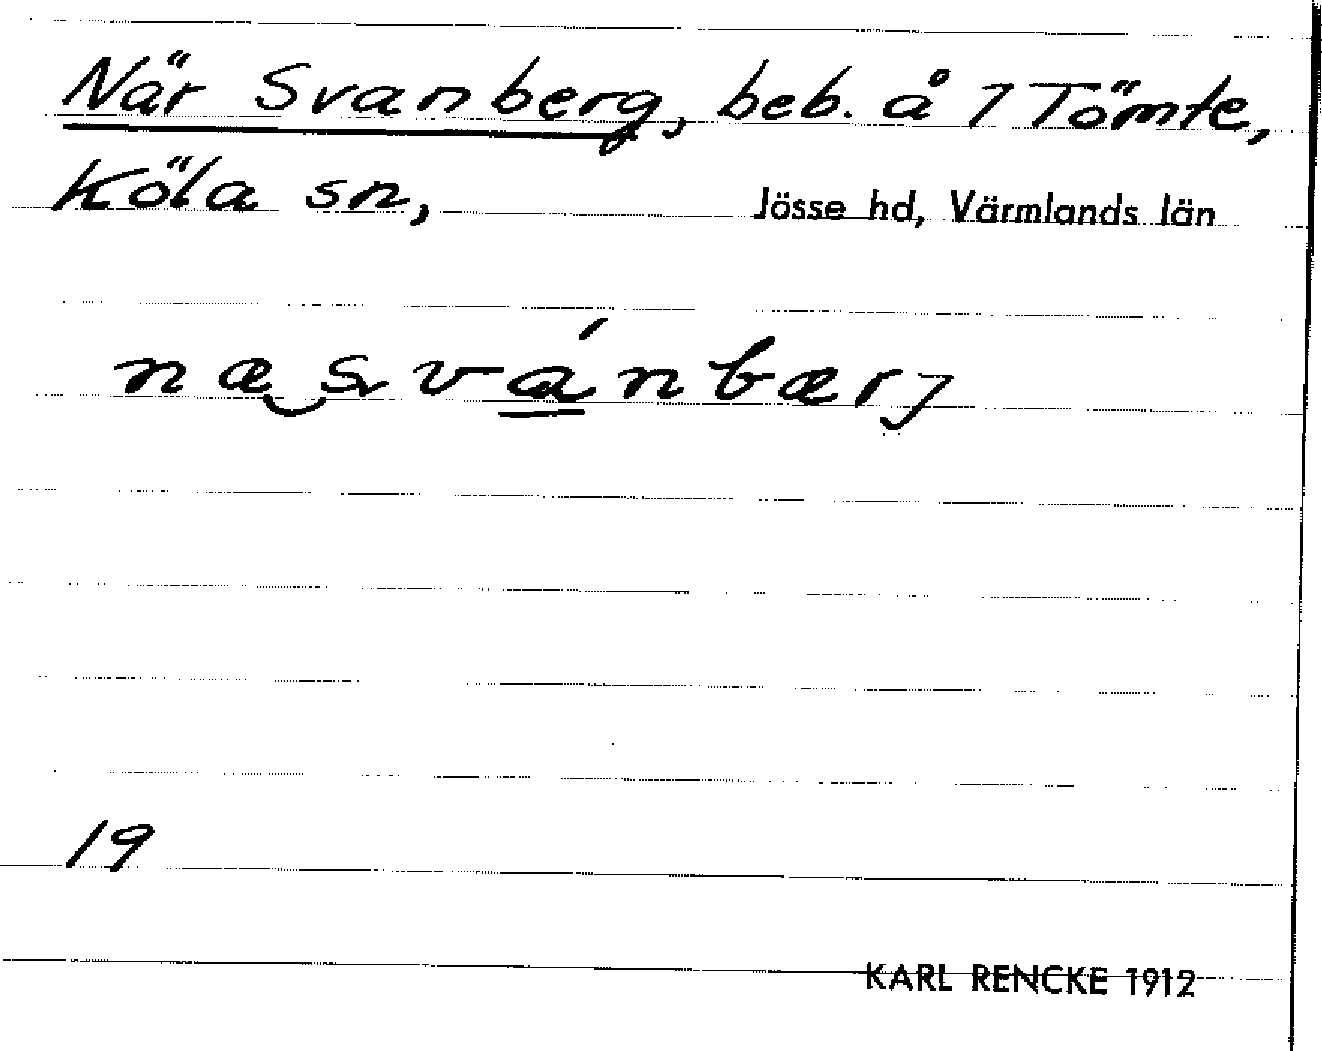 När Svanberg, beb. å 7 Tömte,
Köla sn, Jösse hd, Värmlands län
næ‿svánbærj
19
KARL RENCKE 1912